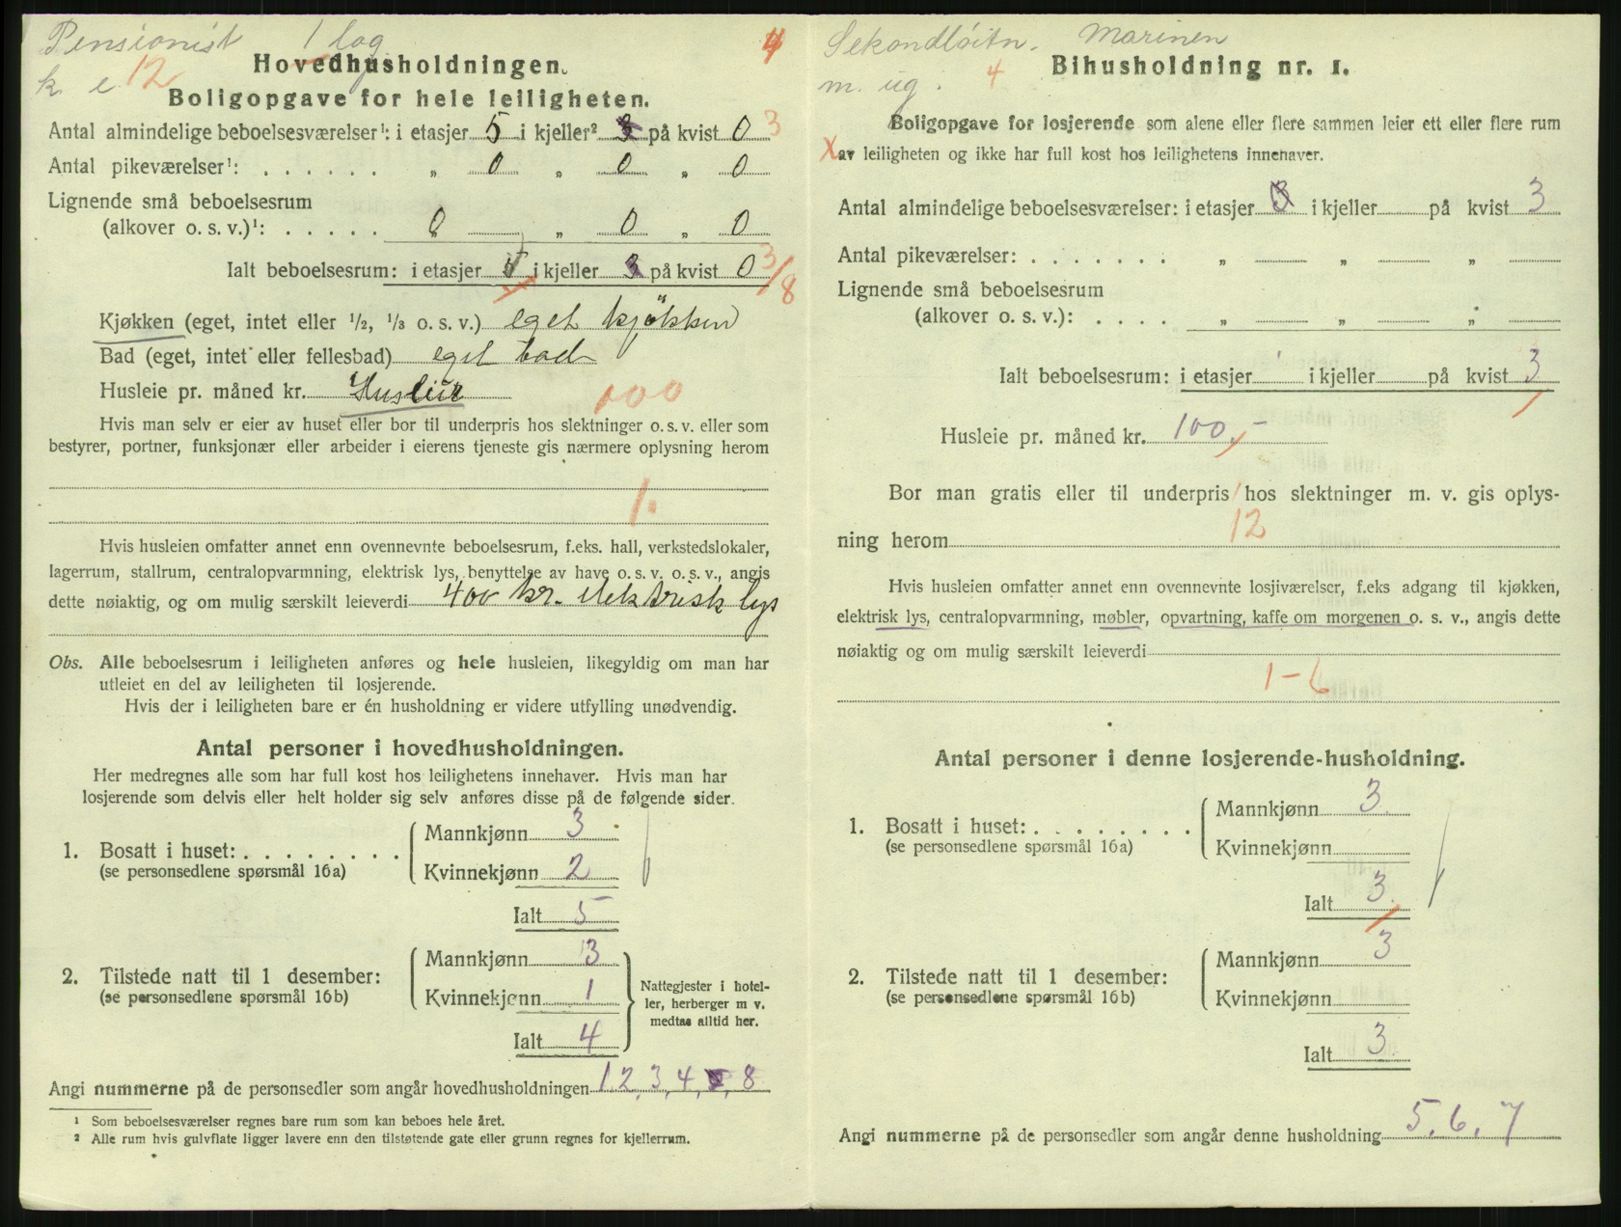 Pensionist 1 log
k. e. 12
4
Hovedhusholdningen.
Boligopgave for hele leiligheten.
Antal almindelige beboelsesværelser¹: i etasjer 5 i kjeller² 3 på kvist 0 3
Antal pikeværelser¹: . . . . . . „ 0 „ 0 „ 0
Lignende små beboelsesrum
(alkover o. s. v.)¹: . . . . . 0 „ 0 „ 0
Ialt beboelsesrum: i etasjer 5 i kjeller 3 på kvist 0 3/8
Kjøkken (eget, intet eller ½, ⅓ o. s. v.) eget kjökken
Bad (eget, intet eller fellesbad) eget bad
Husleie pr. måned kr. Husleie 100
Hvis man selv er eier av huset eller bor til underpris hos slektninger o. s. v. eller som
bestyrer, portner, funksjonær eller arbeider i eierens tjeneste gis nærmere oplysning herom
1.
Hvis husleien omfatter annet enn ovennevnte beboelsesrum, f.eks. hall, verkstedslokaler,
lagerrum, stallrum, centralopvarmning, elektrisk lys, benyttelse av have o. s. v. o. s. v., angis
dette nøiaktig, og om mulig særskilt leieverdi 400 kr. elektrisk lys
Obs. Alle beboelsesrum i leiligheten anføres og hele husleien, likegyldig om man har
utleiet en del av leiligheten til losjerende.
Hvis der i leiligheten bare er én husholdning er videre utfylling unødvendig.
Antal personer i hovedhusholdningen.
Her medregnes alle som har full kost hos leilighetens innehaver. Hvis man har
losjerende som delvis eller helt holder sig selv anføres disse på de følgende sider.
1. Bosatt i huset: . . . . . . . .
(se personsedlene spørsmål 16a)
Mannkjønn 3
Kvinnekjønn 2
Ialt 5
2. Tilstede natt til 1 desember:
(se personsedlene spørsmål 16b)
Mannkjønn 3
Kvinnekjønn 1
Ialt 4
Nattegjester i hotel-
ler, herberger m v.
medtas alltid her.
Angi nummerne på de personsedler som angår hovedhusholdningen 1, 2, 3, 4, 8
¹ Som beboelsesværelser regnes bare rum som kan beboes hele året.
² Alle rum hvis gulvflate ligger lavere enn den tilstøtende gate eller grunn regnes for kjellerrum.
Sekondløitn. Marinen
m. ug. 4
Bihusholdning nr. 1.
Boligopgave for losjerende som alene eller flere sammen leier ett eller flere rum
X av leiligheten og ikke har full kost hos leilighetens innehaver.
Antal almindelige beboelsesværelser: i etasjer 3 i kjeller på kvist 3
Antal pikeværelser: . . . . . . . „ „ „
Lignende små beboelsesrum
(alkover o. s. v.): . . . . „ „ „
Ialt beboelsesrum: i etasjer i kjeller på kvist 3
Husleie pr. måned kr. 100,-
Bor man gratis eller til underpris hos slektninger m. v. gis oplys-
12
ning herom
Hvis husleien omfatter annet enn ovennevnte losjiværelser, f.eks adgang til kjøkken,
elektrisk lys, centralopvarmning, møbler, opvartning, kaffe om morgenen o. s. v., angis dette
nøiaktig og om mulig særskilt leieverdi
1-6
Antal personer i denne losjerende-husholdning.
1. Bosatt i huset: . . . . . . . .
(se personsedlene spørsmål 16a)
Mannkjønn 3.
Kvinnekjønn
Ialt 3.
2. Tilstede natt til 1 desember:
(se personsedlene spørsmål 16b)
Mannkjønn 3
Kvinnekjønn
Ialt 3.
Angi nummerne på de personsedler som angår denne husholdning 5. 6. 7